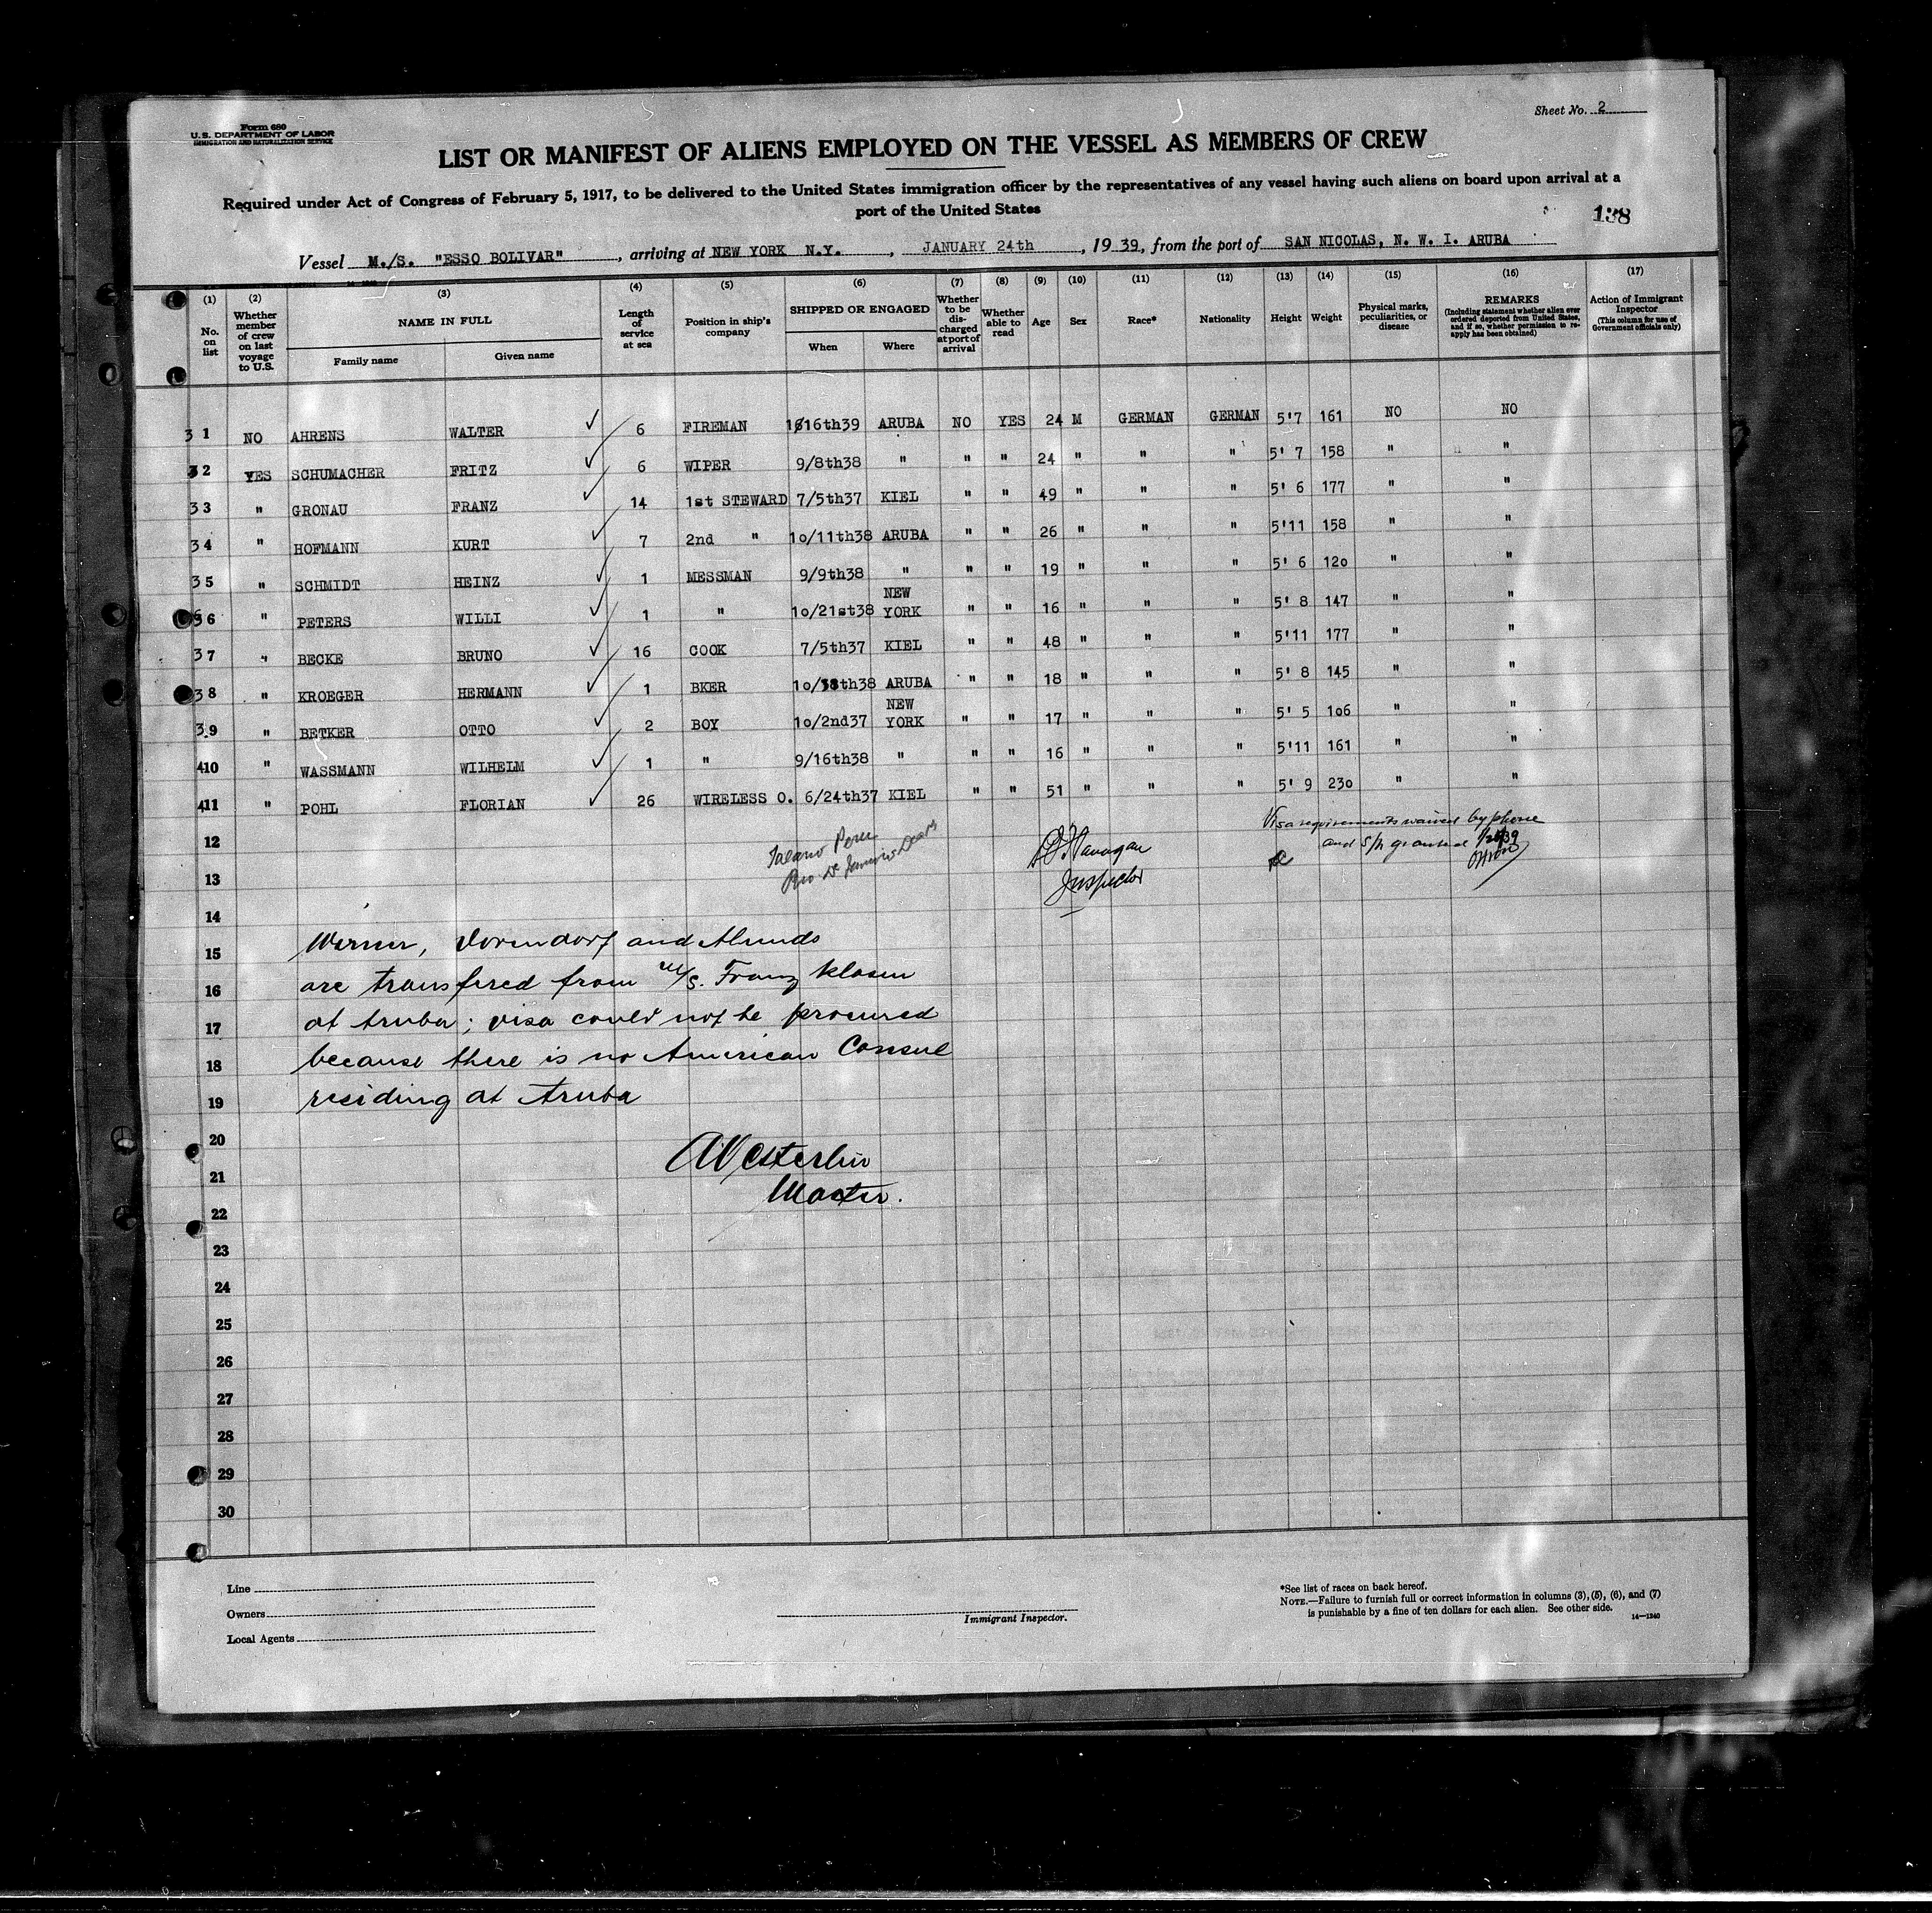 Sheet No. 2
Form 680
U. S. DEPARTMENT OF LABOR
IMMIGRATION AND NATURALIZATION SERVICE
LIST OR MANIFEST OF ALIENS EMPLOYED ON THE VESSEL AS MEMBERS OF CREW
Required under Act of Congress of February 5, 1917, to be delivered to the United States immigration officer by the representatives of any vessel having such aliens on board upon arrival at a
port of the United States
138
Vessel M./S. "ESSO BOLIVAR", arriving at NEW YORK N.Y., JANUARY 24th, 1939, from the port of SAN NICOLAS, N. W. I. ARUBA
(1) (2) (3) (4) (5) (6) (7) (8) (9) (10) (11) (12) (13) (14) (15) (16) (17)
No. on list
Whether member of crew on last voyage to U.S.
NAME IN FULL
Family name
Given name
Length of service at sea
Position in ship's company
SHIPPED OR ENGAGED
When
Where
Whether to be discharged at port of arrival
Whether able to read
Age
Sex
Race*
Nationality
Height
Weight
Physical marks, peculiarities, or disease
REMARKS
(Including statement whether alien ever ordered deported from United States, and if so, whether permission to reapply has been obtained)
Action of Immigrant Inspector
(This column for use of Government officials only)
31 NO AHRENS WALTER ✓ 6 FIREMAN 1/16th39 ARUBA NO YES 24 M GERMAN GERMAN 5'7 161 NO NO
32 YES SCHUMACHER FRITZ ✓ 6 WIPER 9/8th38 " " " 24 " " " 5' 7 158 " "
33 " GRONAU FRANZ ✓ 14 1st STEWARD 7/5th37 KIEL " " 49 " " " 5' 6 177 " "
34 " HOFMANN KURT ✓ 7 2nd " 10/11th38 ARUBA " " 26 " " " 5'11 158 " "
35 " SCHMIDT HEINZ ✓ 1 MESSMAN 9/9th38 " " " 19 " " " 5' 6 120 " "
36 " PETERS WILLI ✓ 1 " 10/21st38 NEW YORK " " 16 " " " 5' 8 147 " "
37 " BECKE BRUNO ✓ 16 COOK 7/5th37 KIEL " " 48 " " " 5'11 177 " "
38 " KROEGER HERMANN ✓ 1 BKER ARUBA " " 18 " " " 5' 8 145 " "
39 " BETKER OTTO ✓ 2 BOY 10/2nd37 NEW YORK " " 17 " " " 5' 5 106 " "
410 " WASSMANN WILHELM ✓ 1 " 9/16th38 " " " 16 " " " 5'11 161 " "
411 " POHL FLORIAN ✓ 26 WIRELESS O. 6/24th37 KIEL " " 51 " " " 5' 9 230 " "
Visa requirements waived by phone
12 and S/L granted
13 Inspector
14
15 Werner, Dorendorf and
16 are transfered from M/S. Franz Klasen
17 at Aruba; visa could not be procured
18 because there is no American Consul
19 residing at Aruba
20
21 Master.
22
23
24
25
26
27
28
29
30
Line
Owners
Local Agents
Immigrant Inspector.
*See list of races on back hereof.
NOTE.—Failure to furnish full or correct information in columns (3), (5), (6), and (7)
is punishable by a fine of ten dollars for each alien. See other side.
14—1240